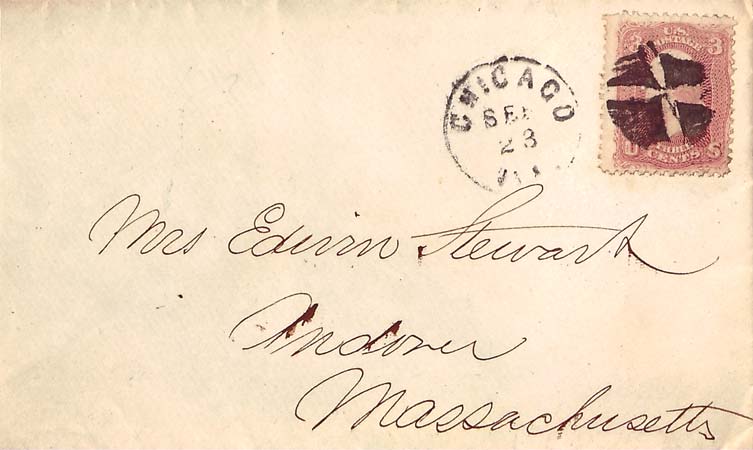 3 U.S. 3
POSTAGE
U S
THREE
CENTS
CHICAGO
SEP
23
Ill.
Mrs Edwin Stewart
Andover
Massachusetts